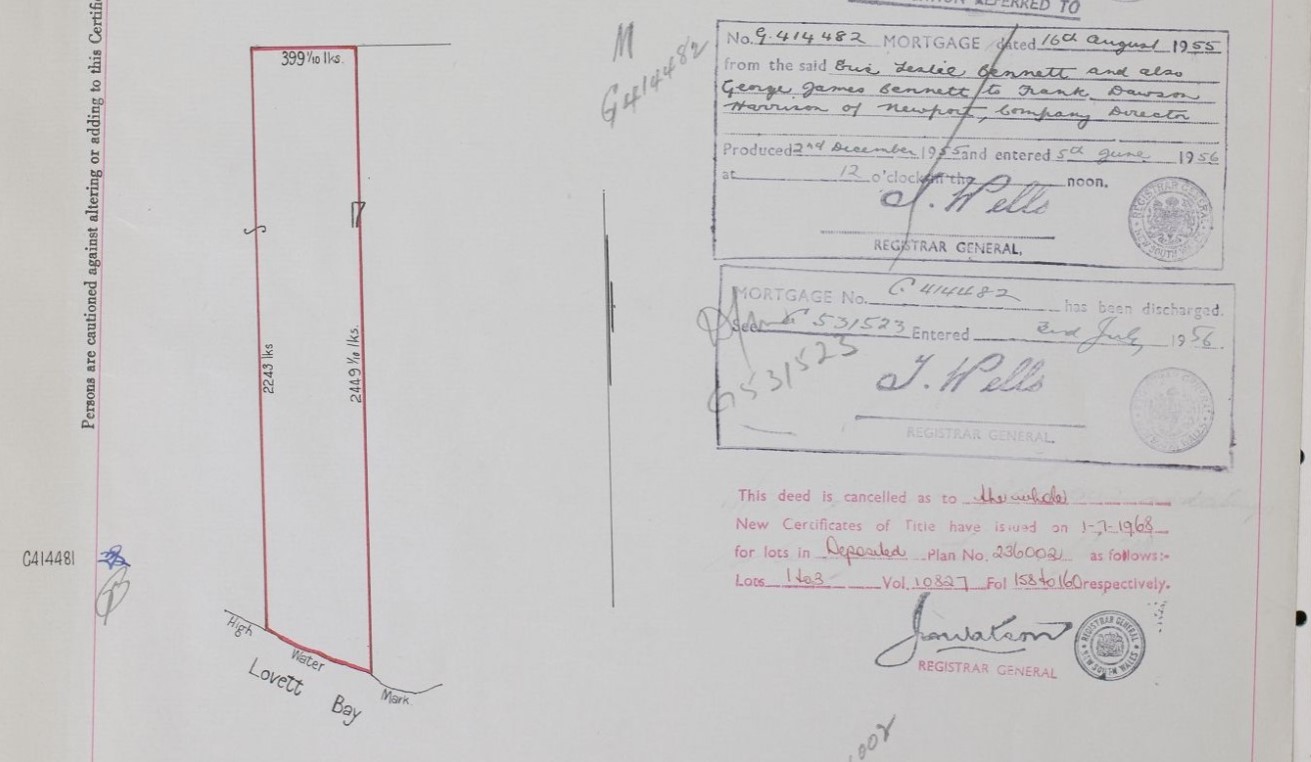 REFERRED TO
Persons are cautioned against altering or adding to this Certifi
399 1/10 lks.
2243 lks
2449 1/10 lks.
High
Water
Mark
Lovett
Bay
C414481
M
G414482
No. G.414482 MORTGAGE dated 16th August 1955
from the said Eric Leslie Bennett and also
George James Bennett to Frank Dawson
Harrison of Newport, Company Director
Produced 2nd December 1955 and entered 5th June 1956
at 12 o'clock in the noon.
J. Wells
REGISTRAR GENERAL.
REGISTRAR GENERAL
NEW SOUTH WALES
MORTGAGE No. G 414482 has been discharged.
See G 531523 Entered 2nd July 1956.
G531523
J. Wells
REGISTRAR GENERAL.
This deed is cancelled as to the whole
New Certificates of Title have issued on 1-7-1968
for lots in Deposited Plan No. 236002 as follows:-
Lots 1 to 3 Vol. 10827 Fol 158 to 160 respectively.
Jawatson
REGISTRAR GENERAL
REGISTRAR GENERAL
NEW SOUTH WALES